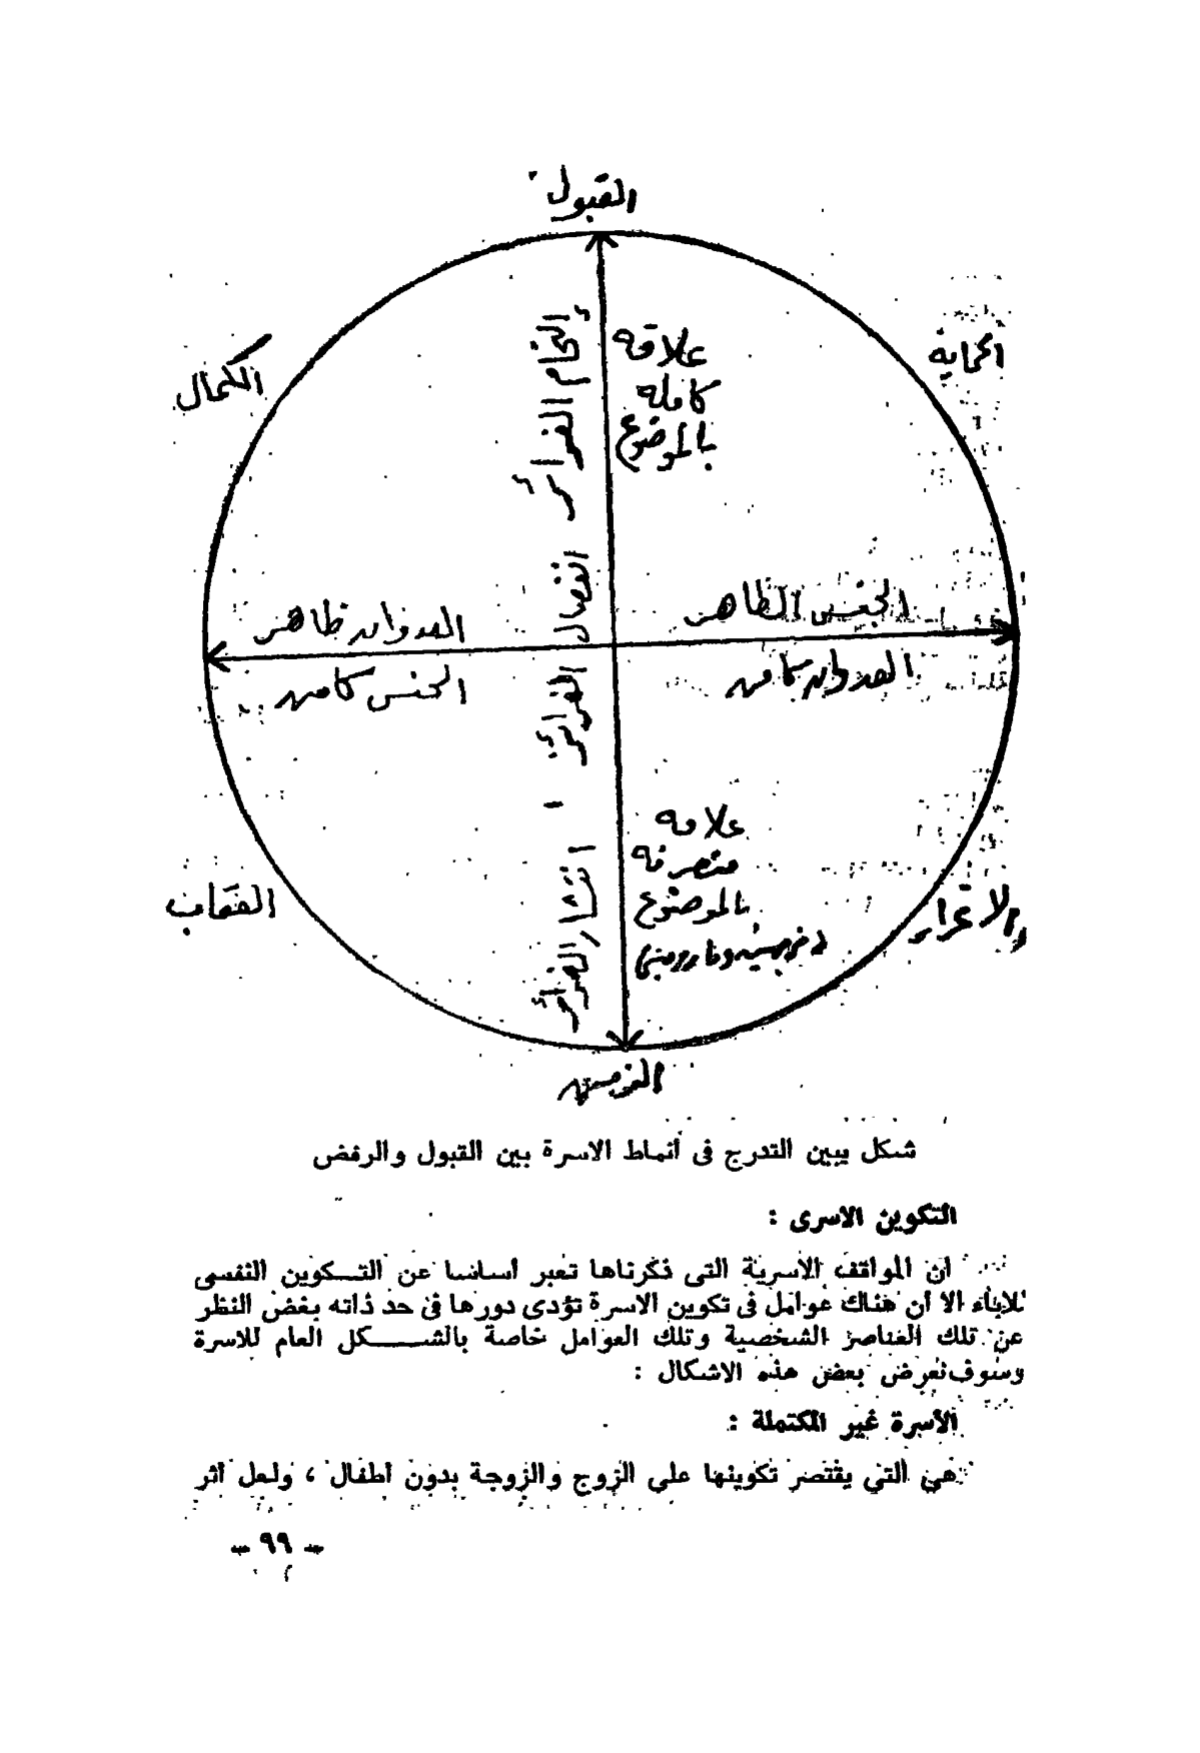 القبول
الحماية
الكمال
علاقه
كامله
بالموضوع
إلتحام الغرائز
الجنس الظاهر
العدوان ظاهر
انفصال الغرائز
العدوان كامن
الجنس كامن
علاقه
منصرفه
بالموضوع
انتشار الغرائز
العقاب
الرفض
شكل يبين التدرج فى أنماط الاسرة بين القبول والرفض
التكوين الاسرى :
ان المواقف الاسرية التى ذكرناها تعبر أساسا عن التكوين النفسى
للابناء الا أن هناك عوامل فى تكوين الاسرة تؤدى دورها فى حد ذاته بغض النظر
عن تلك العناصر الشخصية وتلك العوامل خاصة بالشكل العام للاسرة
وسوف نعرض بعض هذه الاشكال :
الأسرة غير المكتملة :
هى التى يقتصر تكوينها على الزوج والزوجة بدون أطفال ، ولعل أثر
– ٩٩ –